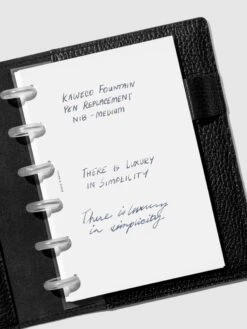 KAWECO FOUNTAIN
PEN REPLACEMENT
NIB - MEDIUM
THERE IS LUXURY
IN SIMPLICITY
There is luxury
in simplicity